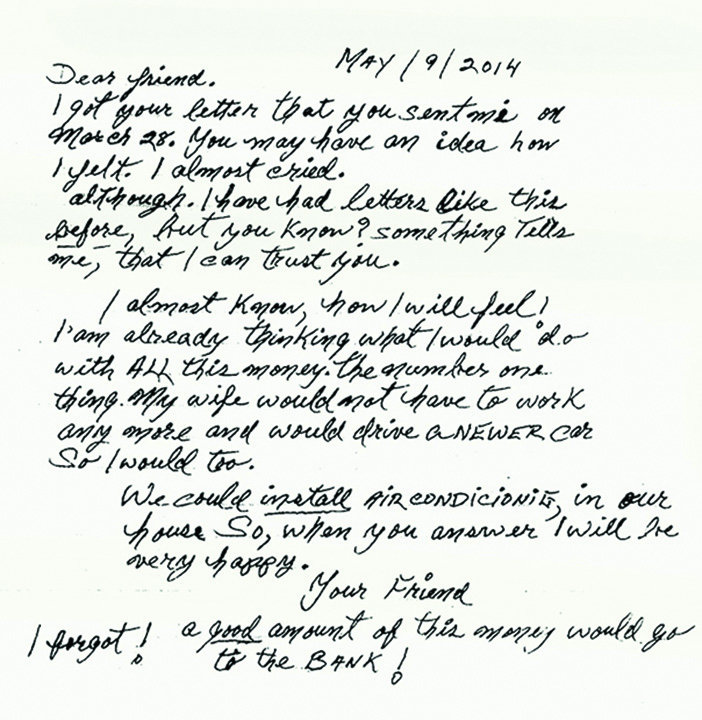 MAY/9/2014
Dear friend.
I got your letter that you sent me on
March 28. You may have an idea how
I felt. I almost cried.
although. I have had letters like this
before, but you know? something Tells
me, that I can trust you.
I almost know, how I will feel!
I'am already thinking what I would do
with ALL this money. the number one
thing. My wife would not have to work
any more and would drive a NEWER car
So I would too.
We could install AIR CONDICIONIG, in our
house So, when you answer I will be
very happy.
Your Friend
I forgot! a good amount of this money would go
to the BANK!